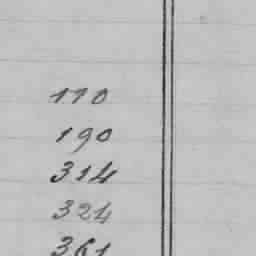 110
190
314
324
361